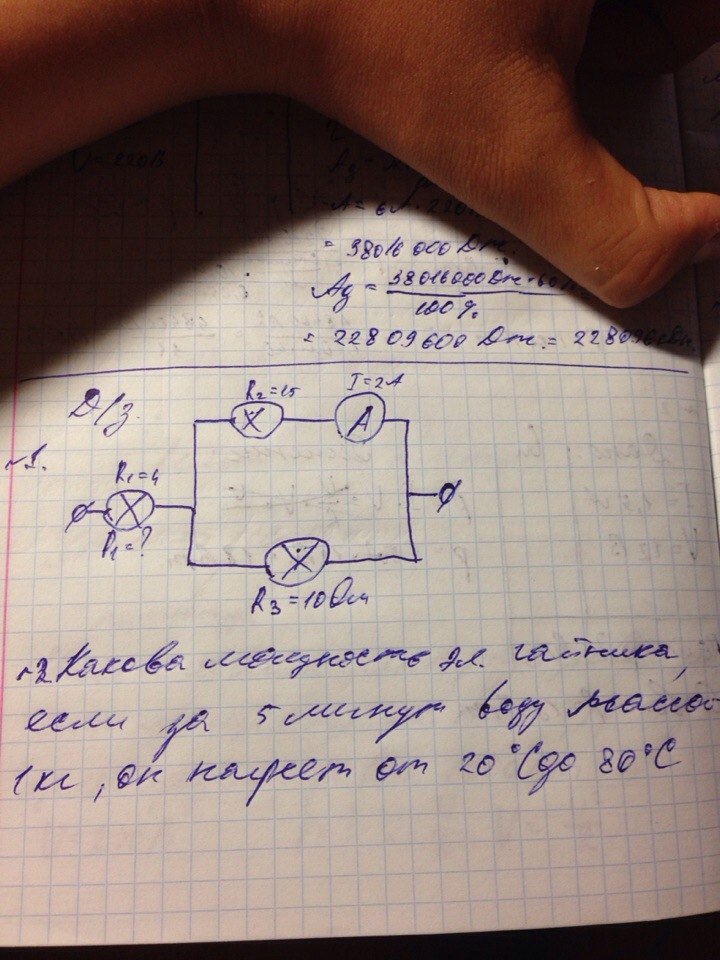 U = 220В
= 38016 000 Дж.
Ag = 38016000Дж · 60
100 %
= 228 09 600 Дж. = 22809
Д/з.
R₂=15
I=2A
X
A
№1.
R₁=4
X
P₁=?
X
R₃=10Ом
№2 Какова мощность эл. чайника,
если за 5 минут воду массо
1кг, он нагреет от 20°С до 80°С